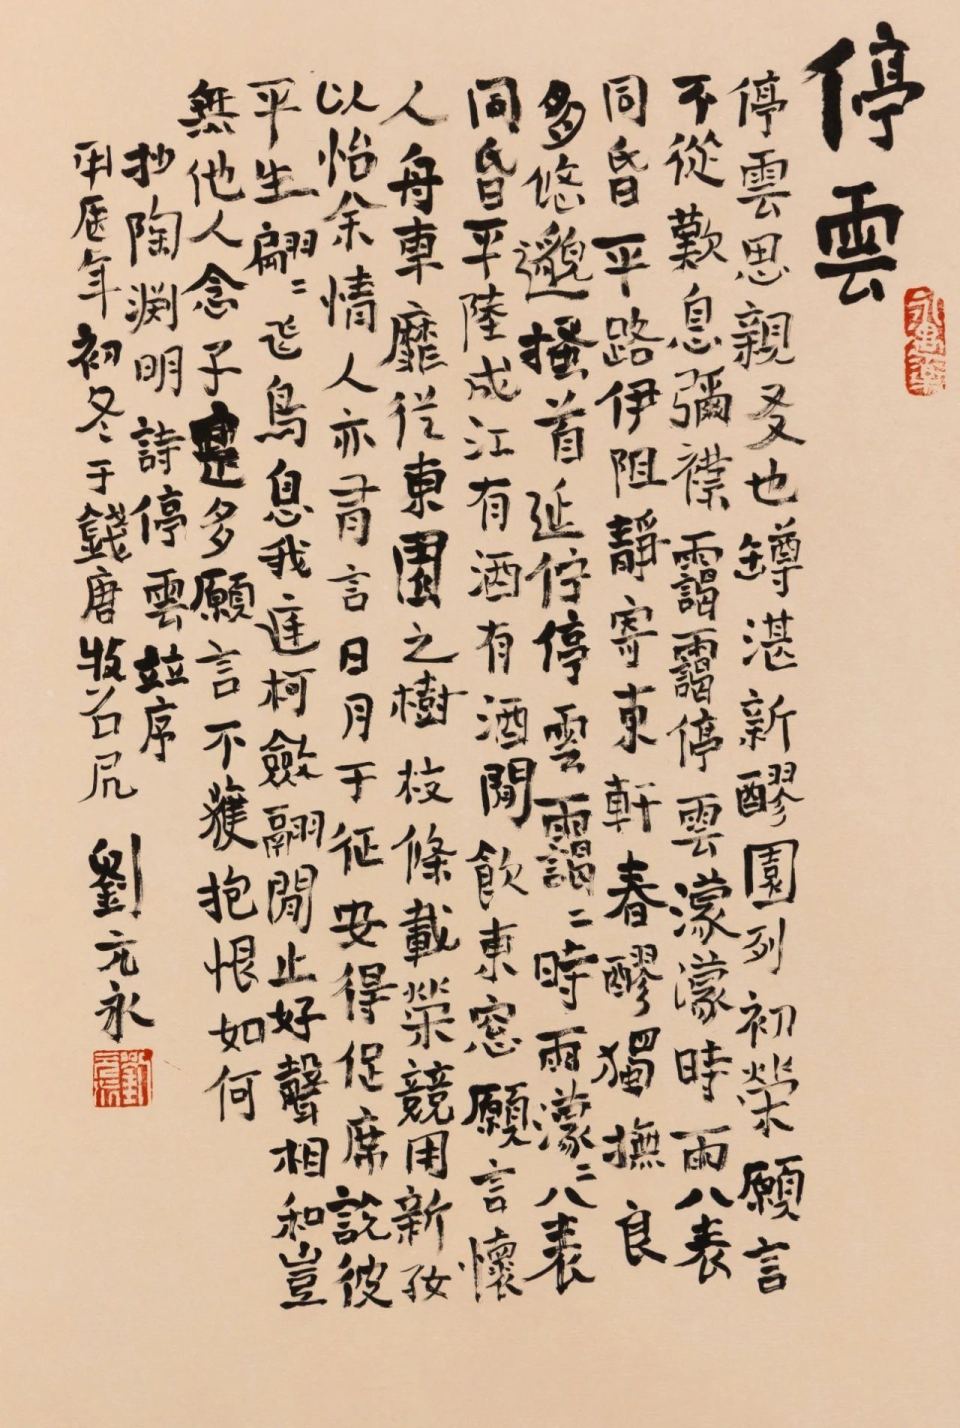 停雲
停雲思親友也罇湛新醪園列初榮願言
不從歎息彌襟靄靄停雲濛濛時雨八表
同昏平路伊阻靜寄東軒春醪獨撫良
多悠邈搔首延佇停雲靄〻時雨濛〻八表
同昏平陸成江有酒有酒閒飲東窓願言懷
人舟車靡從東園之樹枝條載榮競用新好
以怡余情人亦有言日月于征安得促席說彼
平生翩〻飛鳥息我庭柯斂翮閒止好聲相和豈
無他人念子寔多願言不獲抱恨如何
抄陶淵明詩停雲並序
甲辰年初冬于錢唐牧石凥 劉元永